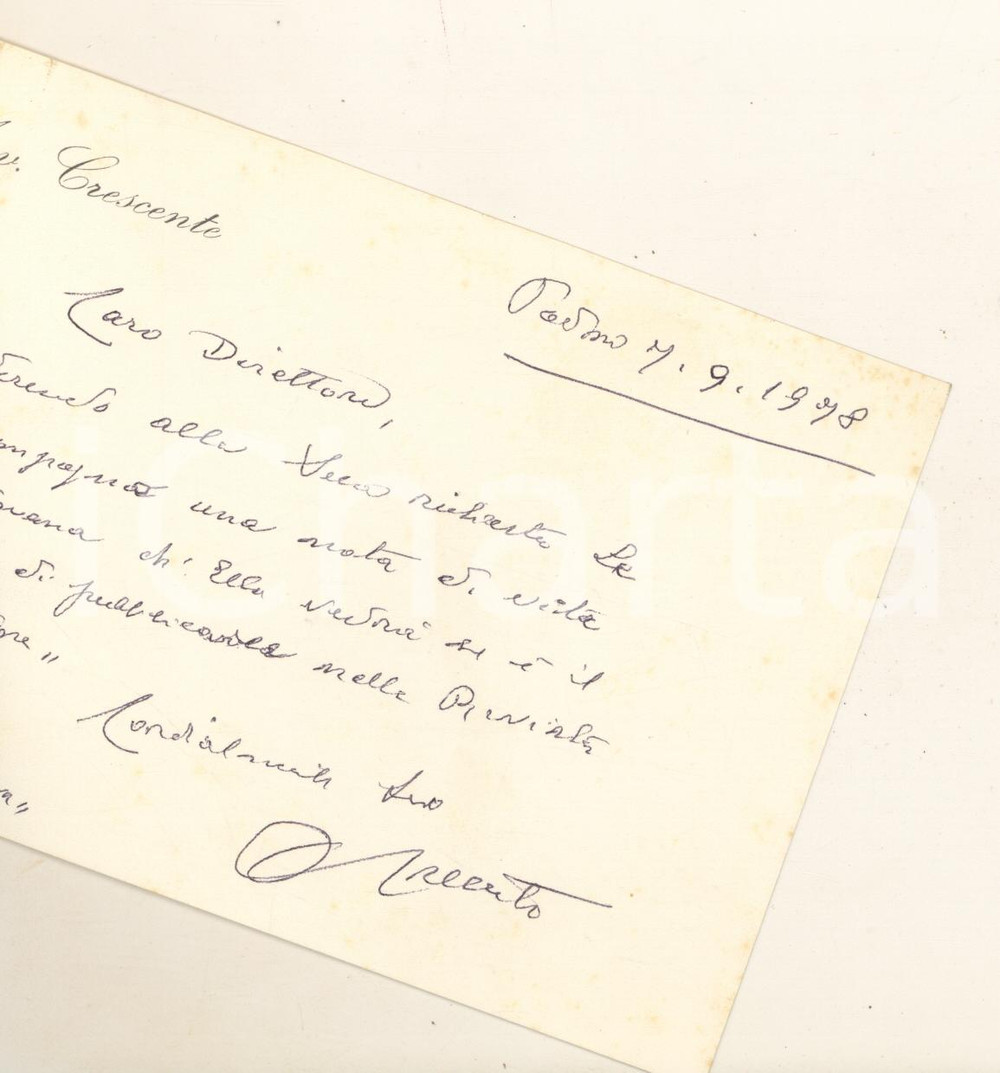 v. Crescente
Padova 7.9.1978
Caro Direttore,
alla Sua richiesta Le
una nota di vita
ch'Ella vedrà se è il
di pubblicarla nella Rivista
Cordialmente Suo